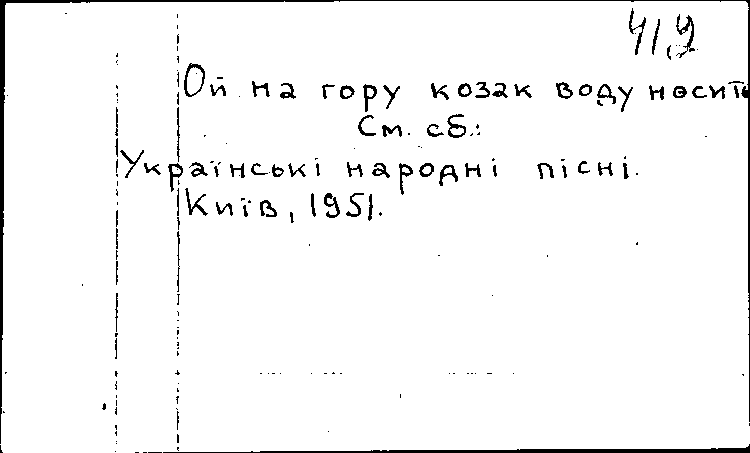 41,9
Ой на гору козак воду носить
См. сб.:
Українські народні пісні.
Київ, 1951.